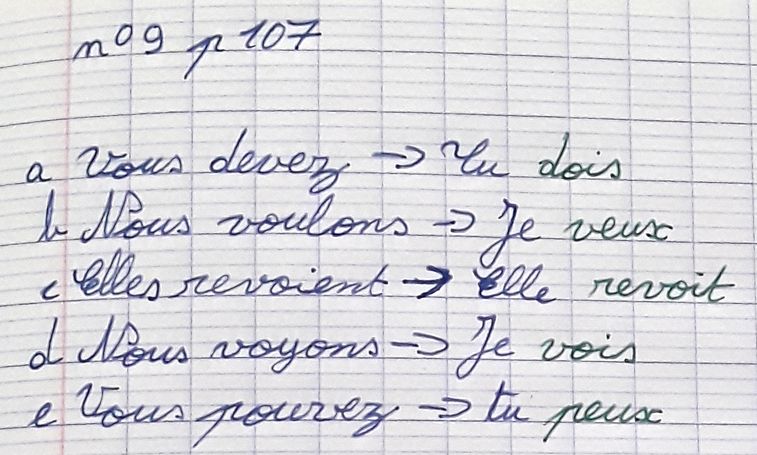 n°9 p 107
a Vous devez → Tu dois
b Nous voulons → Je veux
c Elles revoient → Elle revoit
d Nous voyons → Je vois
e Vous pouvez → tu peux